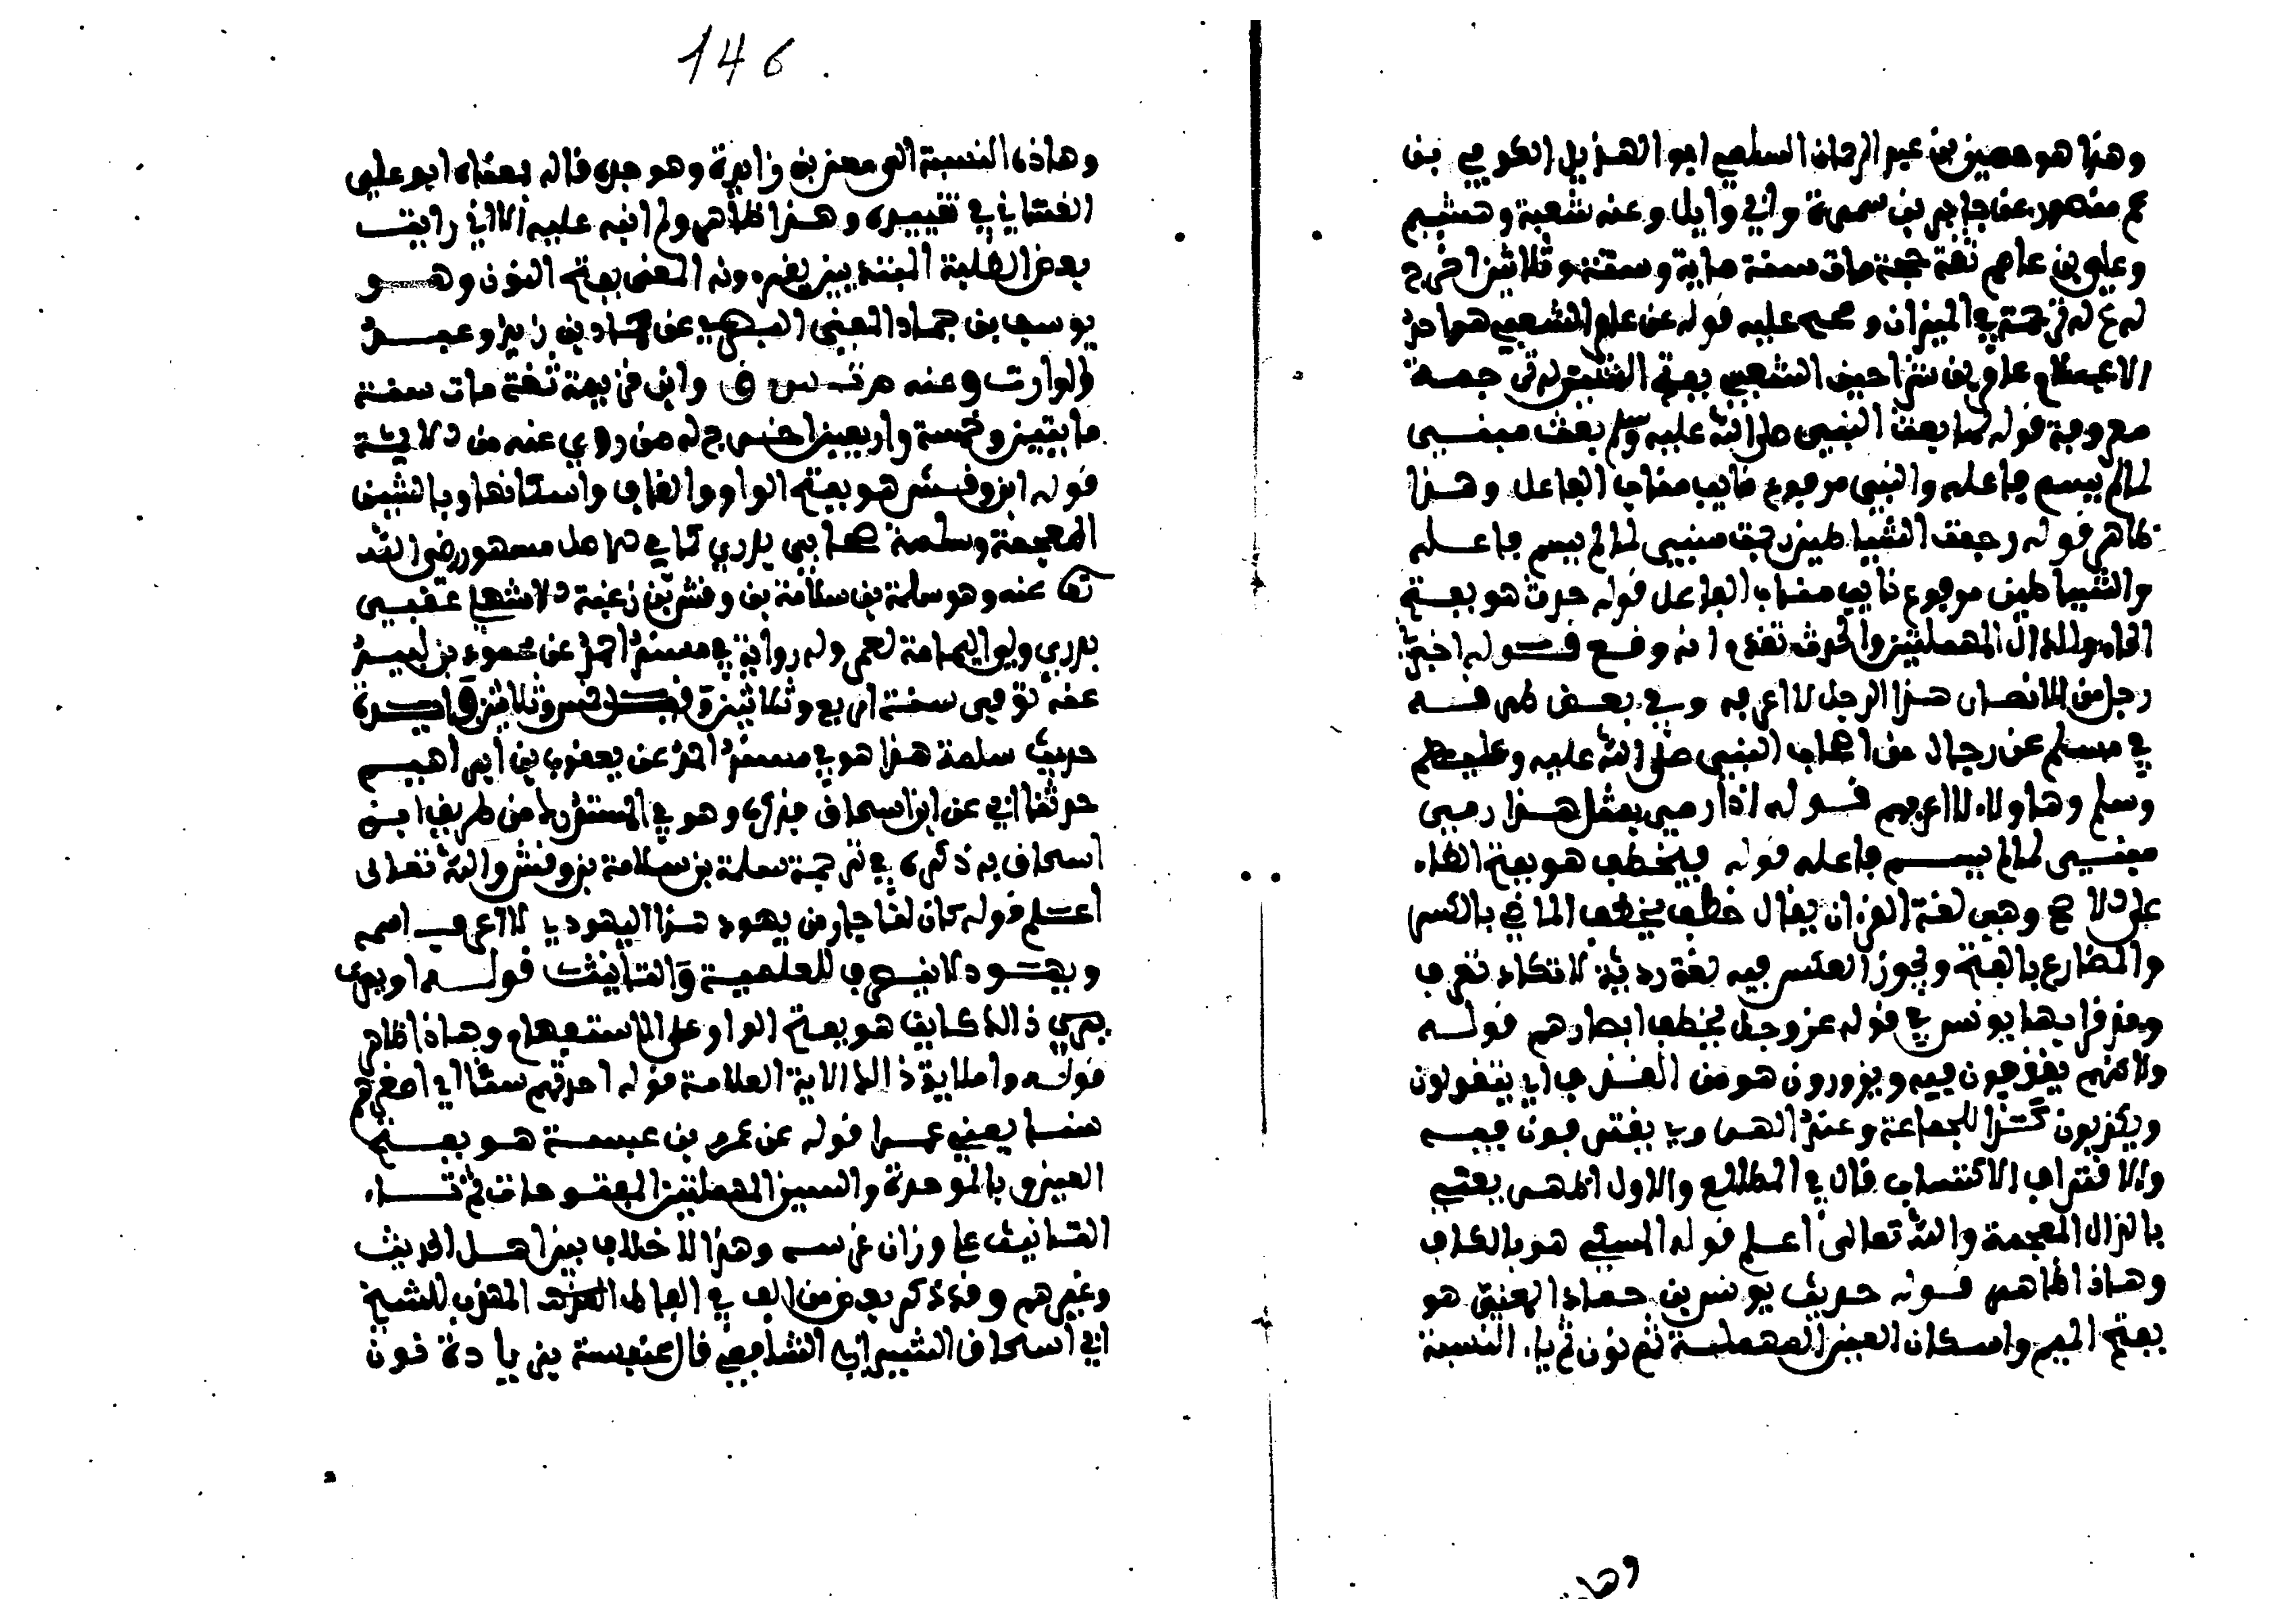 وهذا هو حصين بن عبد الرحمان السلمي ابو الهذيل الكوفي بن
عم منصور عن جابر بن سمرة وابي وايل وعنه شعبة وهشيم
وعلي بن عاصم ثقة حجة مات سنة ماية وستة وثلاثين اخرج
له ع له ترجمة في الميزان وصحح عليه قوله عن عامر الشعبي هو احد
الاعلام عامر بن شراحيل الشعبي بفتح الشين ترجمته
معروفة قوله لما بعث النبي صلى الله عليه وسلم بعث مبني
لما لم يسم فاعله والنبي مرفوع نايب مناب الفاعل وهذا
ظاهر قوله رجعت الشياطين مبني لما لم يسم فاعله
والشياطين مرفوع نايب مناب الفاعل قوله حدث هو بفتح
الحاء والدال المهملتين والحدث تقدم انه وقع قوله اخبرني
رجل من الانصار هذا الرجل لا اعرفه وفي بعض طرقه
في مسلم عن رجال من اصحاب النبي صلى الله عليه
وسلم وهاولاء لا اعرفهم قوله اذا رمي بمثل هذا رمي
مبني لما لم يسم فاعله قوله فيخطف هو بفتح الطاء
على الاصح وهي لغة القران يقال خطف يخطف الماضي بالكسر
والمضارع بالفتح ويجوز العكس فيه لغة ردية لا تكاد تعرف
وقد قرا بها يونس في قوله عز وجل يخطف ابصارهم قوله
ولاكنهم يقذفون فيه ويزورون هو من القذف اي يتقولون
ويكذبون كذا للجماعة وعند الهروي يقترفون فيه
والاقتراف الاكتساب قال في المطالع والاول اظهر يعني
بالذال المعجمة والله تعالى اعلم قوله المسكي هو بالكاف
وهاذا ظاهر قوله حديث يوسف بن حماد المعني هو
بفتح الميم واسكان العين المهملة ثم نون ثم ياء النسبة
وهاذه
146
وهاذه النسبة الى معن بن زايدة وهو جده قاله بمعناه ابو علي
الغساني في تقييده وهذا ظاهر ولم انبه عليه الا اني رايت
بعض الطلبة المبتديين يقرءونه المعنى بفتح النون وهو
يوسف بن حماد المعني البصري عن حماد بن زيد وعبد
الوارث وعنه م ت س ق وابن خزيمة ثقة مات سنة
مايتين وخمسة واربعين اخرج له من روى عنه من الايمة
قوله ابن وقش هو بفتح الواو والقاف واسكانها وبالشين
المعجمة وسلمة صحابي بدري كما في الاصل مشهور رضي الله
تعا عنه وهو سلمة بن سلامة بن وقش بن زغبة الاشهلي عقبي
بدري ولي اليمامة لعمر وله رواية في مسند احمد عن محمود بن لبيد
عنه توفي سنة اربع وثلاثين وقيل خمس وثلاثين فايدة
حديث سلمة هذا هو في مسند احمد عن يعقوب بن ابراهيم
حدثنا ابي عن ابن اسحاق فذكره وهو في المستدرك من طريق ابن
اسحاق به ذكره في ترجمة سلمة بن سلامة بن وقش والله تعالى
اعلم قوله كان لنا جار من يهود هذا اليهودي لا اعرف اسمه
ويهود لا ينصرف للعلمية والتانيث قوله او يرى
يرى ذالك كاين هو بفتح الواو على الاستفهام وهاذا ظاهر
قوله وما اية ذالك الاية العلامة قوله احدثهم سنا اي اصغرهم
سنا يعني عمرا قوله عن عمرو بن عبسة هو بفتح
العين والموحدة والسين المهملتين المفتوحات ثم تاء
التانيث على وزان عدسة وهذا لا خلاف بين اهل الحديث
وغيرهم وقد ذكر بعض من الف في الفاظ المهذب للشيخ
ابي اسحاق الشيرازي الشافعي قال عنبسة بزيادة نون